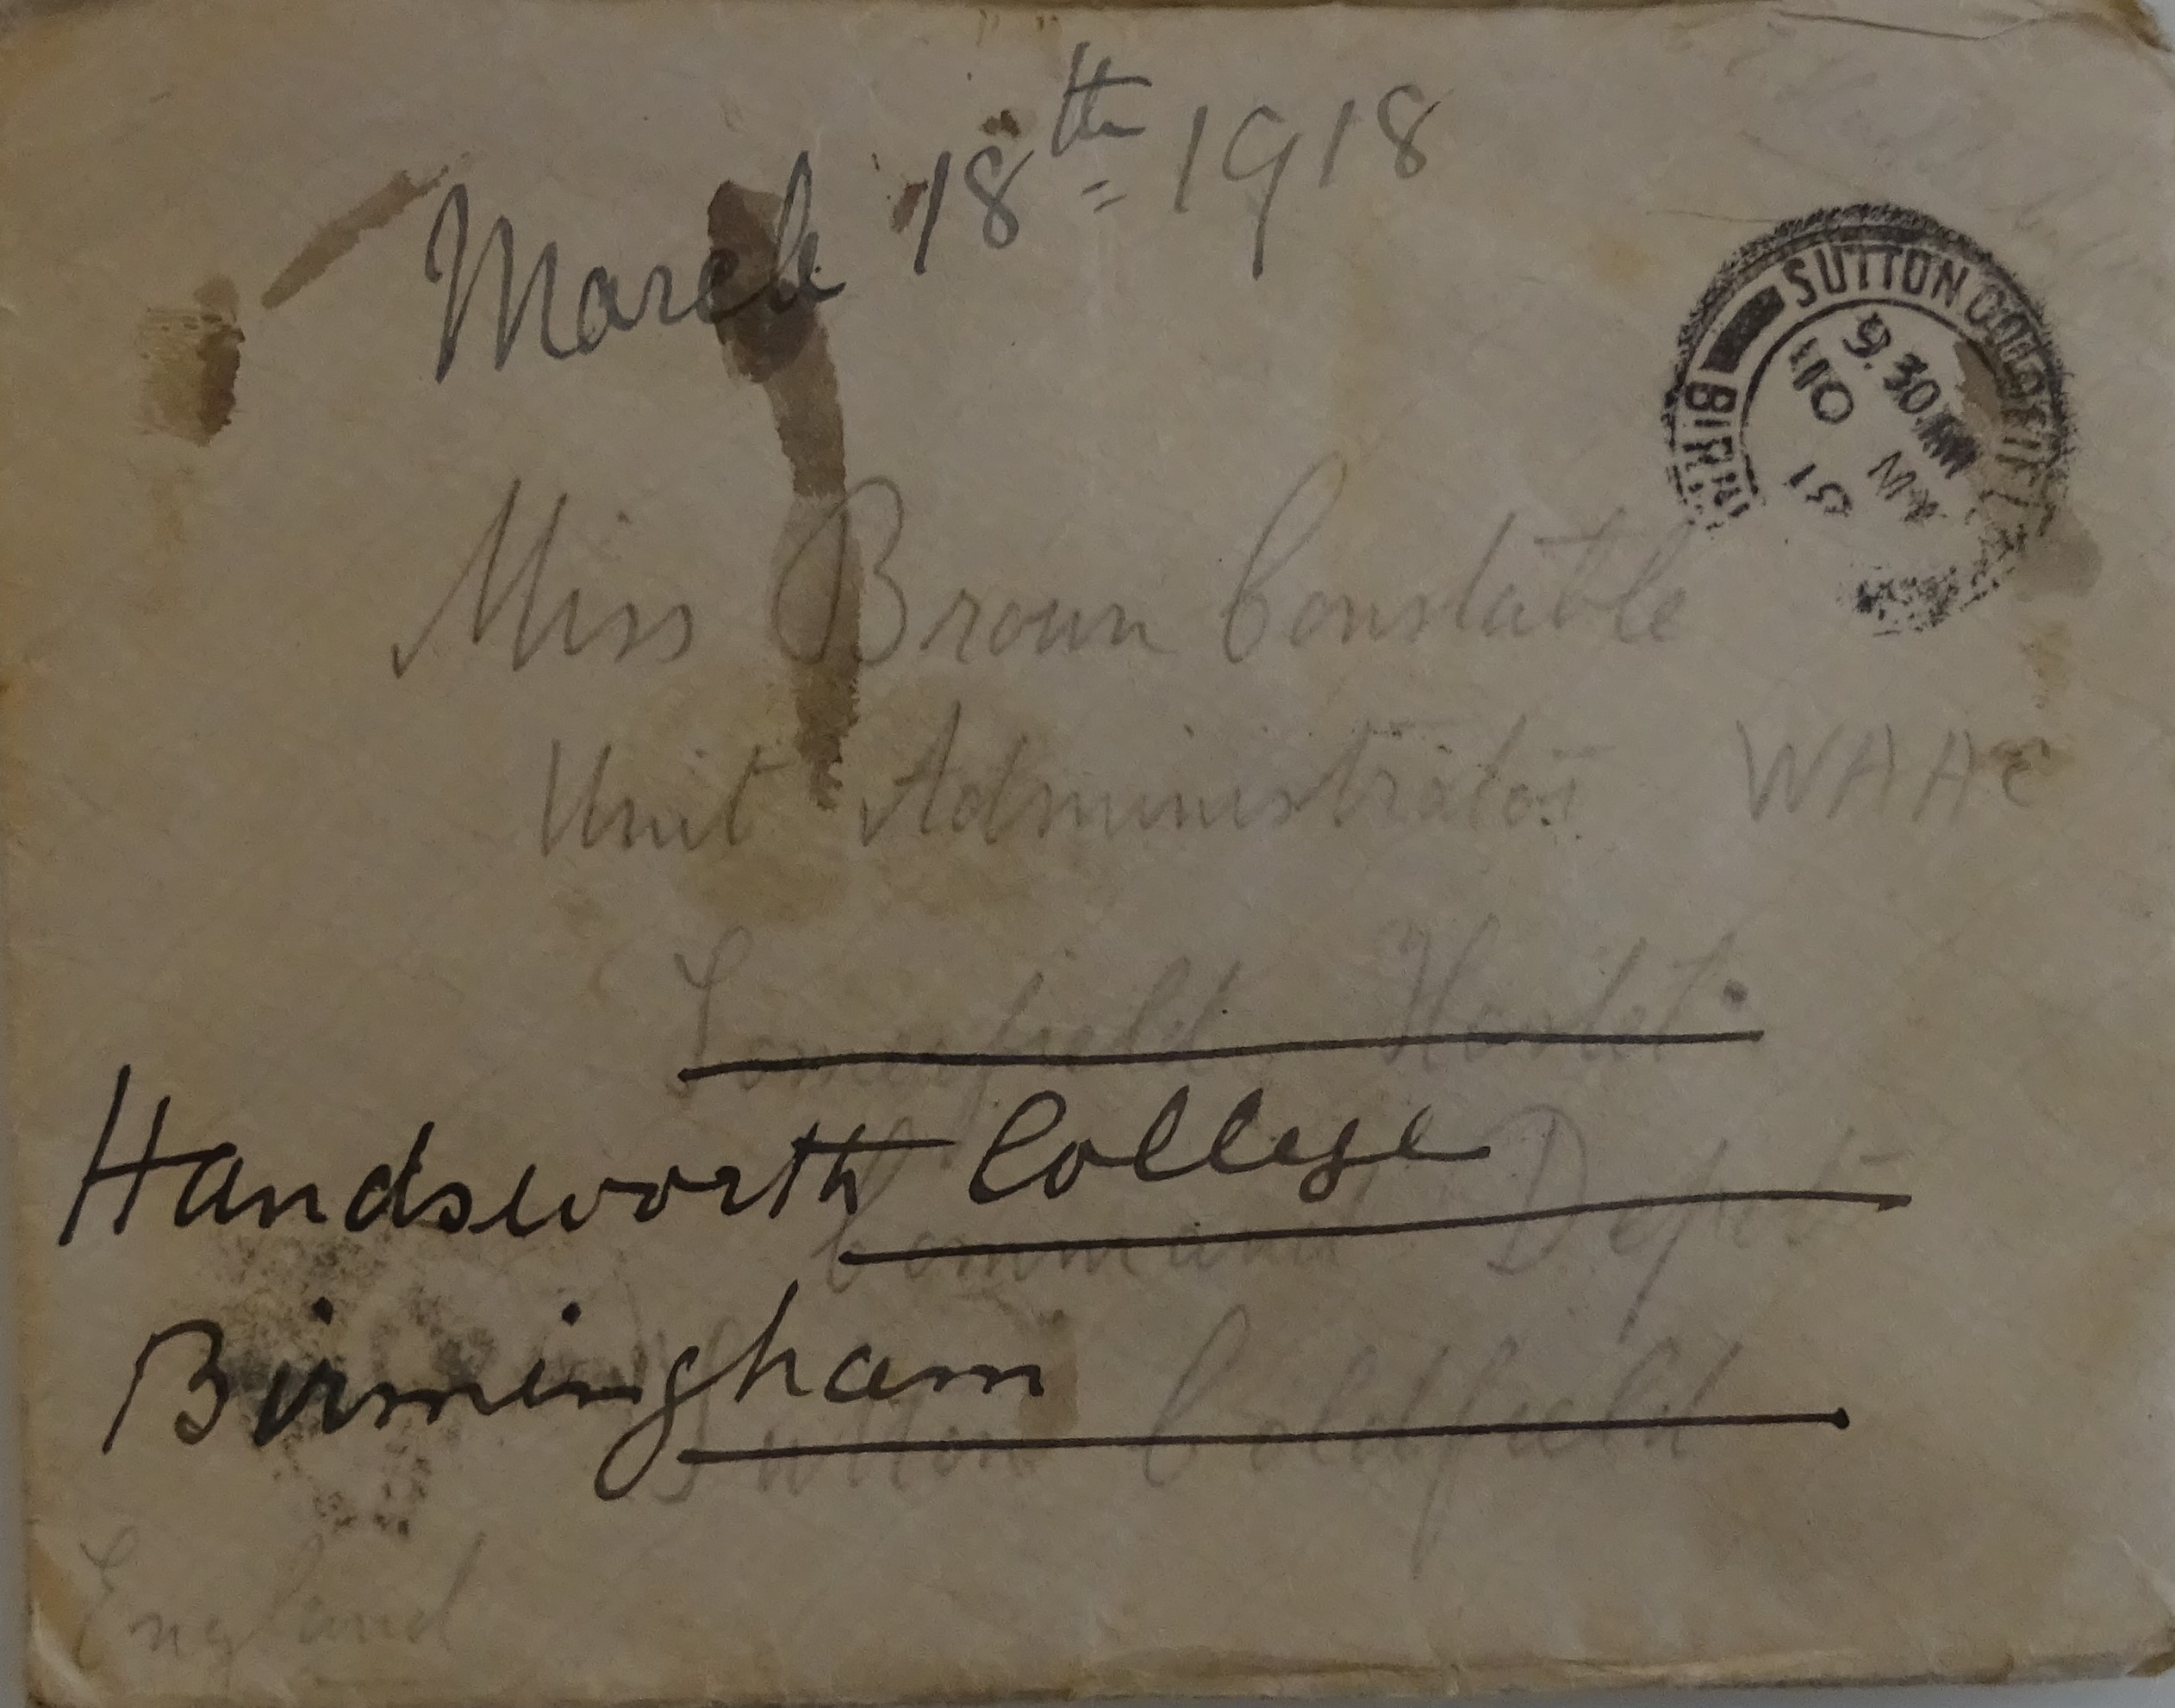 March 18th 1918
SUTTON COLDFIELD
BIRM
9.30 AM
Miss Brown Constable
Unit Administrator WAAC
Hostel
Handsworth College
Command Depot
Birmingham
Sutton Coldfield
England